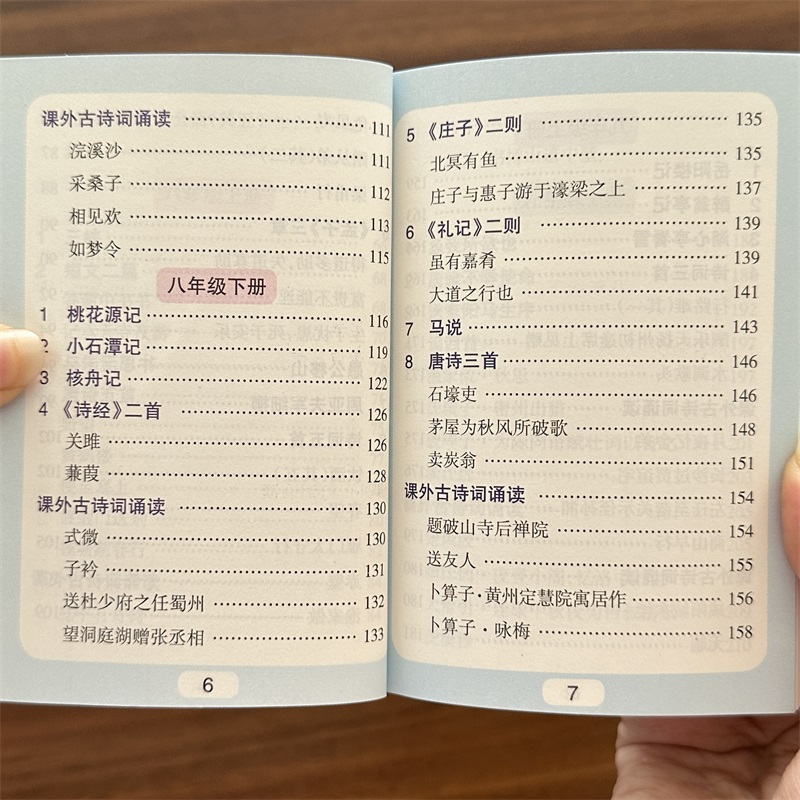 课外古诗词诵读 ………………………… 111
浣溪沙 ………………………… 111
采桑子 ………………………… 112
相见欢 ………………………… 113
如梦令 ………………………… 115
八年级下册
1 桃花源记 ………………………… 116
2 小石潭记 ………………………… 119
3 核舟记 ………………………… 122
4 《诗经》二首 ………………………… 126
关雎 ………………………… 126
蒹葭 ………………………… 128
课外古诗词诵读 ………………………… 130
式微 ………………………… 130
子衿 ………………………… 131
送杜少府之任蜀州 ………………………… 132
望洞庭湖赠张丞相 ………………………… 133
6
5 《庄子》二则 ………………………… 135
北冥有鱼 ………………………… 135
庄子与惠子游于濠梁之上 ………………………… 137
6 《礼记》二则 ………………………… 139
虽有嘉肴 ………………………… 139
大道之行也 ………………………… 141
7 马说 ………………………… 143
8 唐诗三首 ………………………… 146
石壕吏 ………………………… 146
茅屋为秋风所破歌 ………………………… 148
卖炭翁 ………………………… 151
课外古诗词诵读 ………………………… 154
题破山寺后禅院 ………………………… 154
送友人 ………………………… 155
卜算子·黄州定慧院寓居作 ………………………… 156
卜算子·咏梅 ………………………… 158
7